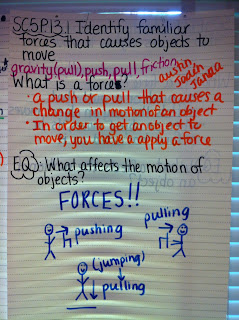 SC5P13.1 Identify familiar
forces that causes objects to
move
gravity(pull), push, pull, friction
What is a force?
austin
joach
janaa
• a push or pull that causes a
change in motion of an object
• In order to get an object to
move, you have a apply a force
EQ: What affects the motion of
objects?
FORCES!!
pushing
pulling
(jumping)
pulling